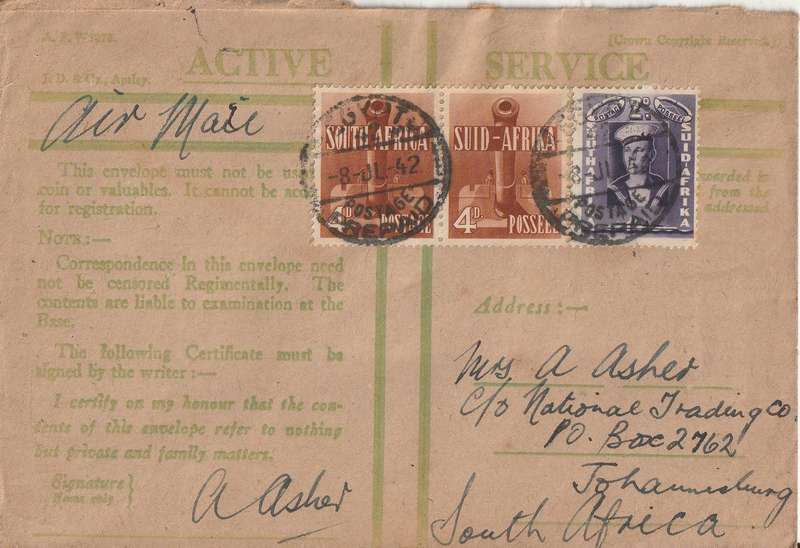 A. F. W 3078.
[Crown Copyright Reserved.]
J. D. & Co., Apsley.
ACTIVE SERVICE
Air Mail
SOUTH AFRICA
4D.
POSSEEL
SUID-AFRIKA
4D.
POSSEEL
2D
POSTAGE POSSEEL
SOUTH AFRICA
SUID-AFRIKA
EGYPT
-8-JL-42
POSTAGE
PREPAID
-8-JL
POSTAGE
PREPAID
This envelope must not be used
coin or valuables. It cannot be
for registration.
from the
addressed
NOTE:—
Correspondence in this envelope need
not be censored Regimentally. The
contents are liable to examination at the
Base.
The following Certificate must be
signed by the writer:—
I certify on my honour that the con-
tents of this envelope refer to nothing
but private and family matters.
Signature
Name only
A Asher
Address:—
Mrs A Asher
C/o National Trading Co.
P.O. Box 2762
Johannesburg
South Africa